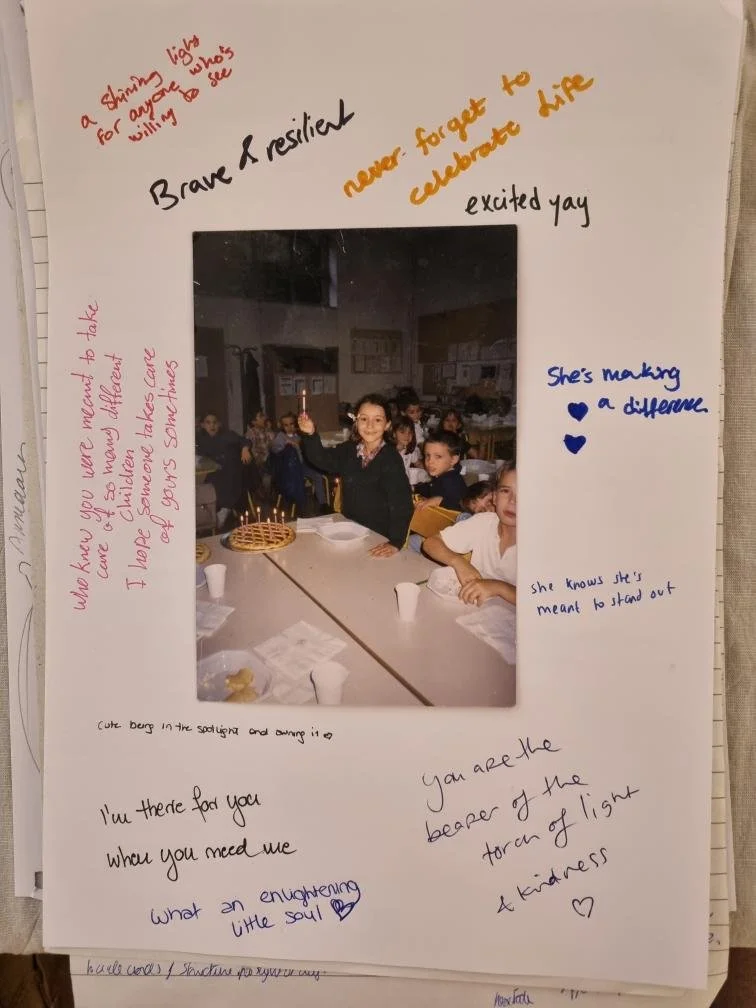 a shining light
for anyone who's
willing to see
Brave & resilient
never forget to
celebrate life
excited yay
who knew you were meant to take
care of so many different
children
I hope someone takes care
of yours sometimes
She's making
a difference
she knows she's
meant to stand out
Cute being in the spotlight and owning it
I'm there for you
when you need me
You are the
bearer of the
torch of light
& kindness
what an enlightening
little soul